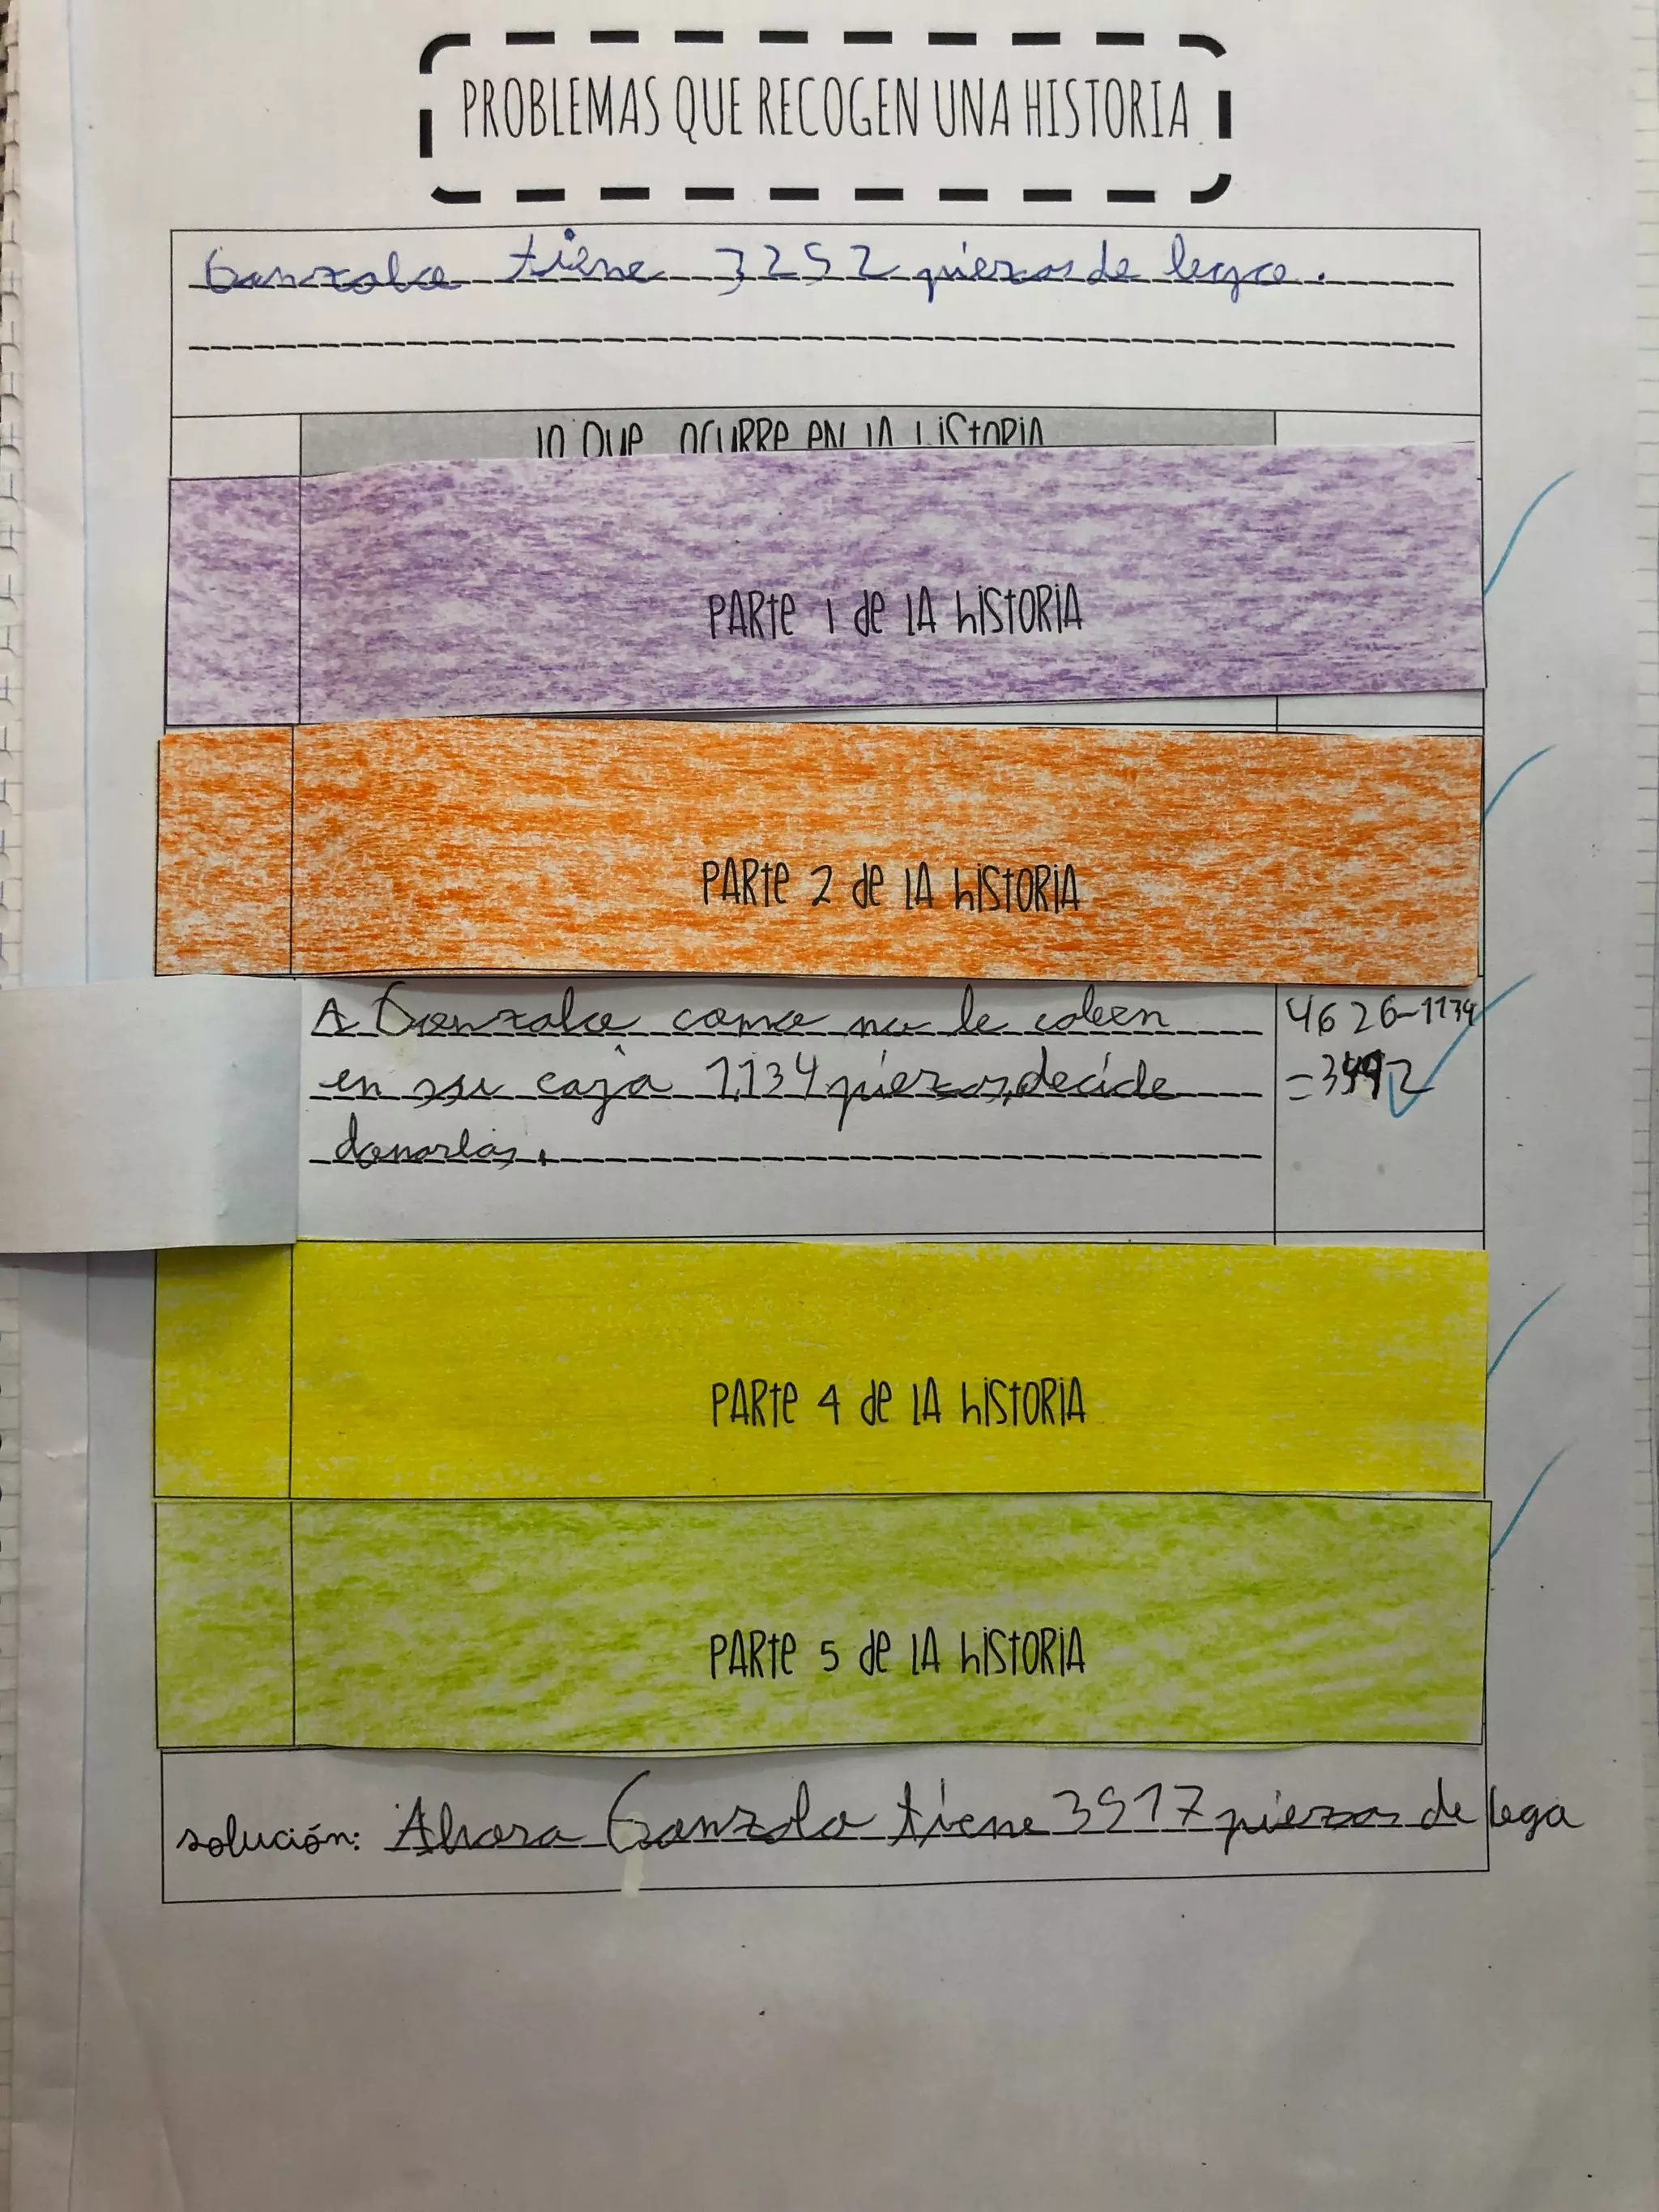 PROBLEMAS QUE RECOGEN UNA HISTORIA
Gonzalo tiene 3252 piezas de lego.
LO QUE OCURRE EN LA HISTORIA
PARTE 1 DE LA HISTORIA
PARTE 2 DE LA HISTORIA
A Gonzalo como no le caben
en su caja 1134 piezas, decide
donarlas.
4626-1134
=3492
PARTE 4 DE LA HISTORIA
PARTE 5 DE LA HISTORIA
solución: Ahora Gonzalo tiene 3517 piezas de lego